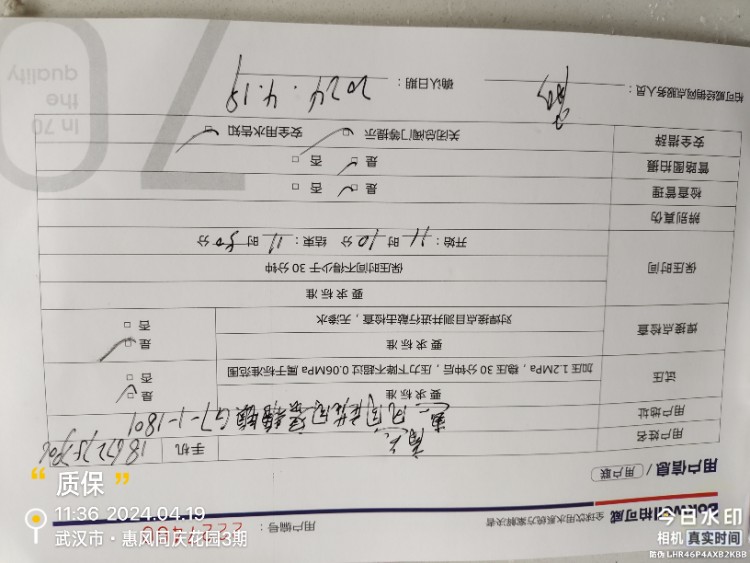 borwei柏可威 全球饮用水系统方案解决者
用户编号：
用户信息 / 用户联
用户姓名
手机
用户地址 1-1801
试压
要求标准
加压1.2MPa，稳压30分钟后，压力下降不超过0.06MPa属于标准范围
是
否
焊接点检查
要求标准
对焊接点目测并进行敲击检查，无渗水
是
否
保压时间
要求标准
保压时间不得少于30分钟
开始：11时10分 结束：11时50分
辨别真伪
检查管理 是 否
管路图拍摄 是 否
安全措辞 关闭总阀门等提示 安全用水告知
柏可威经销网点服务人员：
确认日期：2024.4.19
In 70
the
quality
70
质保
11:36 2024.04.19
武汉市·惠风同庆花园3期
今日水印
相机 真实时间
防伪 LHR46P4AXB2KBB